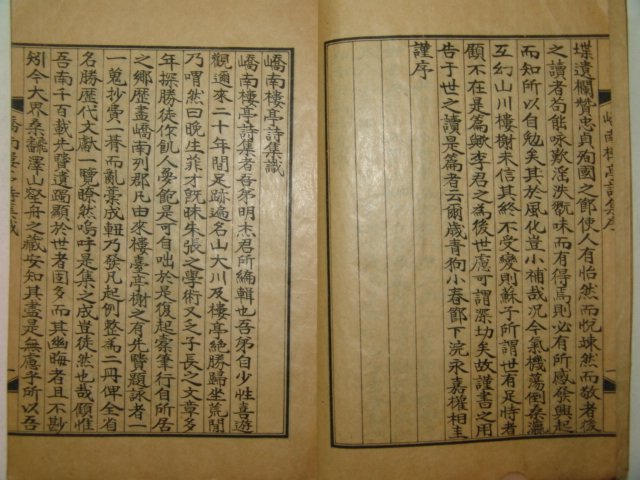 堞遺欄贊忠貞殉國之節使人有怡然而悅竦然而敬者後
之讀者苟能咏歎淫泆翫味而有得焉則必有所感發興起
而知所以自勉矣其於風化豈小補哉况今氣機蕩倒桑瀛
互幻山川樓榭未信其終不受變則蘇子所謂世有足恃者
顧不在是篇歟李君之為後世慮可謂深切矣故謹書之用
告于世之讀是篇者云爾歲青狗小春節下浣永嘉權相圭
謹序
嶠南樓亭詩集序
嶠南樓亭詩集識
嶠南樓亭詩集者吾弟明杰君所編輯也吾弟自少性喜遊
觀邇來二十年間足跡遍名山大川及樓亭絶勝歸坐荒閒
乃喟然曰晚生菲才旣昧朱張之學術又乏子長之文章多
年探勝徒作飢人要飽是可自咄於是復起橐筆行自所居
之鄉歷盡嶠南列郡凡由來樓臺亭榭之有先賢題詠者一
一蒐抄費一朞而亂藁成軺乃發凡起例整為二冊俾全省
名勝歷代文獻一覽瞭然嗚呼是集之成豈徒然也哉顧惟
吾南千百載先賢遺躅顯於世者固多而其幽晦者且不尠
矧今大界桑飜澤山壑舟之藏安知其盡是無慮乎所以吾
嶠南樓亭詩集識